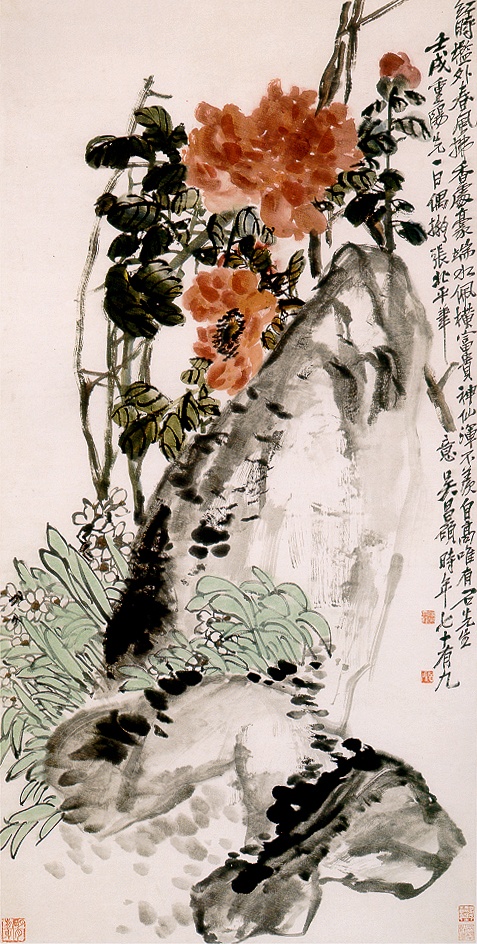 紅時檻外春風拂香處豪端水佩橫富貴神仙渾不羨自高唯有石先生
壬戌重陽先一日偶橅張北平筆意吳昌碩時年七十有九